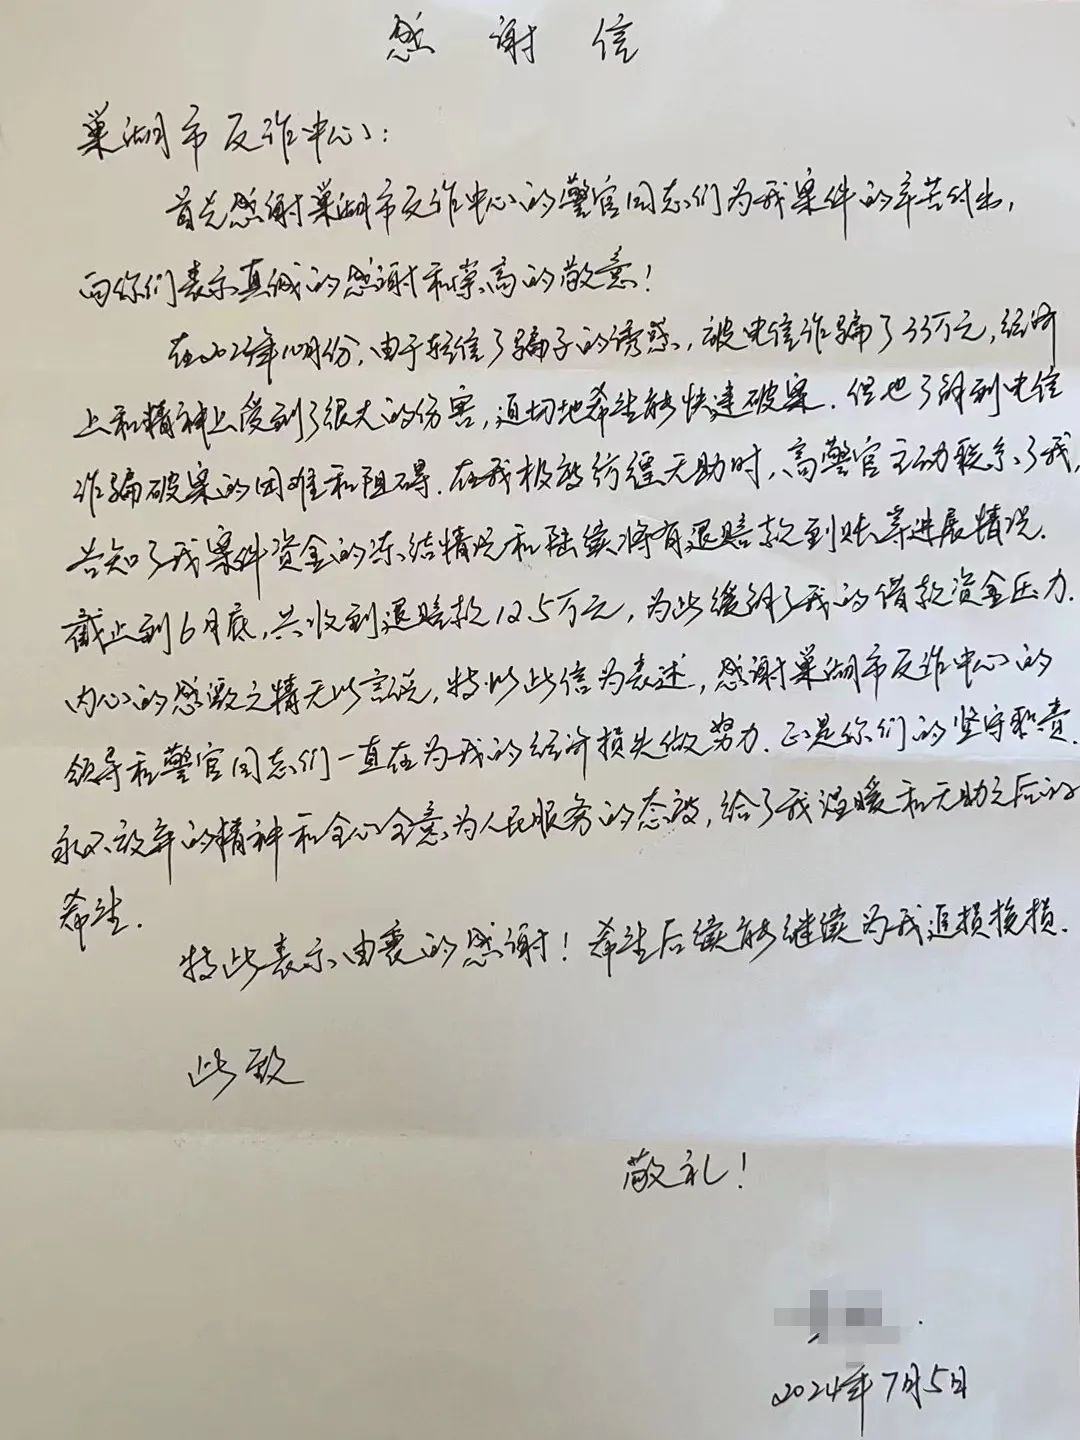 感谢信
巢湖市反诈中心:
首先感谢巢湖市反诈中心的警官同志们为我案件的辛苦付出,
向你们表示真诚的感谢和崇高的敬意!
在2023年10月份,由于轻信了骗子的诱惑,被电信诈骗了33万元,经济
上和精神上受到了很大的伤害,迫切地希望能快速破案.但也了解到电信
诈骗破案的困难和阻碍.在我极度彷徨无助时,高警官主动联系了我,
告知了我案件资金的冻结情况和陆续将有退赔款到账等进展情况.
截止到6月底,共收到退赔款12.5万元,为此缓解了我的借款资金压力.
内心的感激之情无以言说,特以此信为表述,感谢巢湖市反诈中心的
领导和警官同志们一直在为我的经济损失做努力.正是你们的坚守职责.
永不放弃的精神和全心全意为人民服务的态度,给了我温暖和无助之后的
希望.
特此表示由衷的感谢!希望后续能继续为我追损挽损.
此致
敬礼!
2024年7月5日